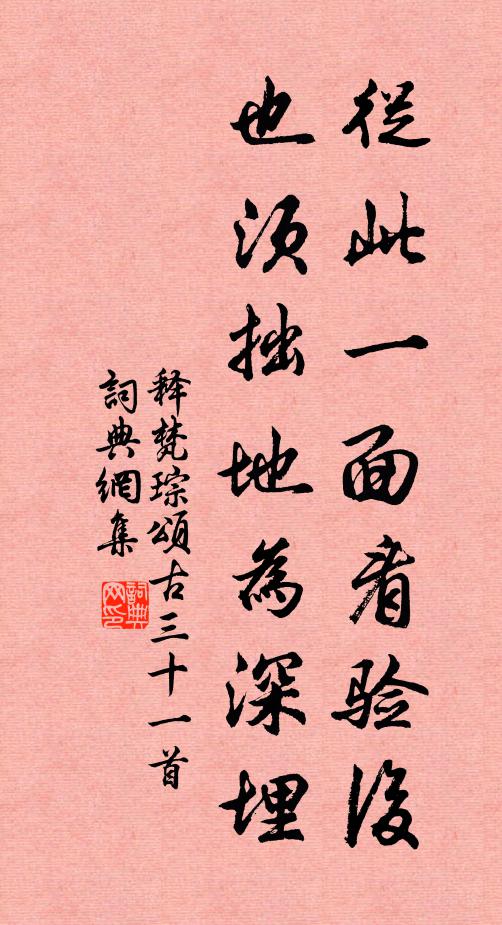 從此一面看验後
也须拙地為深埋
释梵琮頌古三十一首
詞典網集
詞典网印